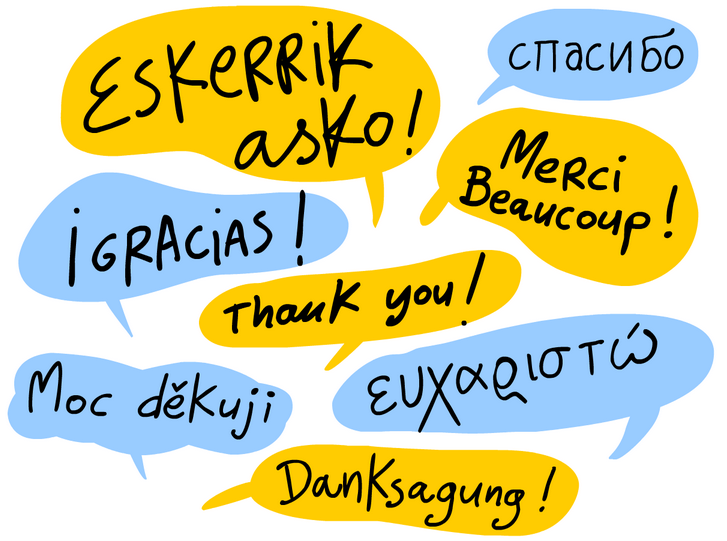 Eskerrik
asko!
спасибо
Merci
Beaucoup!
¡GRACiAS!
Thank you!
Moc děkuji
ευχαριστώ
Danksagung!